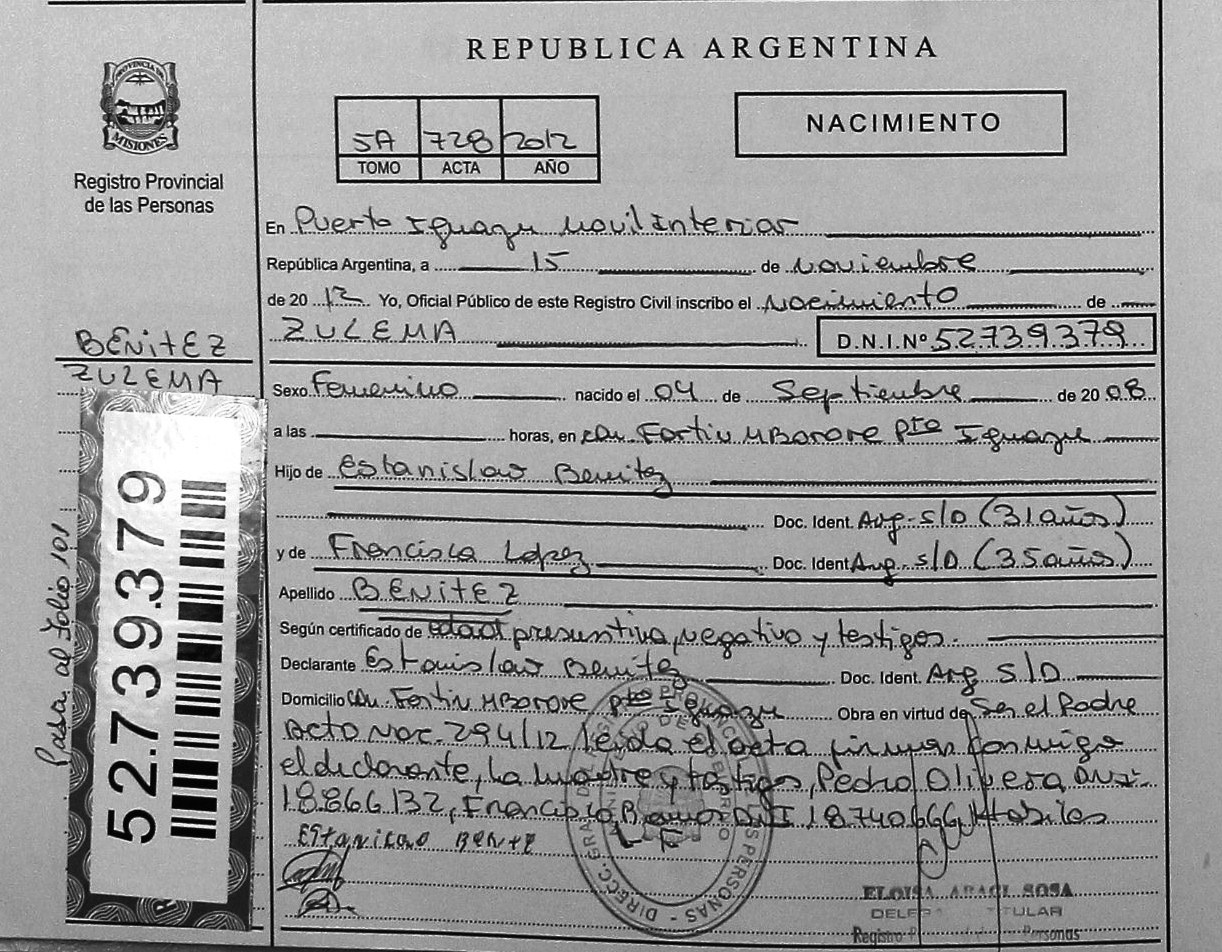 REPUBLICA ARGENTINA
PROVINCIA DE
MISIONES
Registro Provincial
de las Personas
5A 728 2012
TOMO ACTA AÑO
NACIMIENTO
En Puerto Iguazu Movil Interior
República Argentina, a 15 de Noviembre
de 2012 Yo, Oficial Público de este Registro Civil inscribo el Nacimiento de
ZULEMA D.N.I.Nº 52.739.379
BENITEZ
ZULEMA
Sexo Femenino nacido el 04 de Septiembre de 2008
a las horas, en Fortin MBorore Pto Iguazu
Hijo de Estanislao Benitez
Doc. Ident. Arg. S/D (31 años)
y de Francisca Lopez Doc. Ident Arg. S/D (35 años)
Apellido BENITEZ
Según certificado de edad presuntiva, negativo y testigos.
Declarante Estanislao Benitez Doc. Ident. Arg S/D
Domicilio Fortin MBorore Pto Iguazu Obra en virtud de Ser el Padre
Acto Nac. 294/12 leida el acta firman conmigo
el declarante, la madre y testigos, Pedro Olivera DNI
18.866.132, Francisco DNI 18.740.666 Habiles
Estanicao Bente
L F
ELOISA ARACI SOSA
TITULAR
Registro Personas
Pasa al folio 101
52.739.379